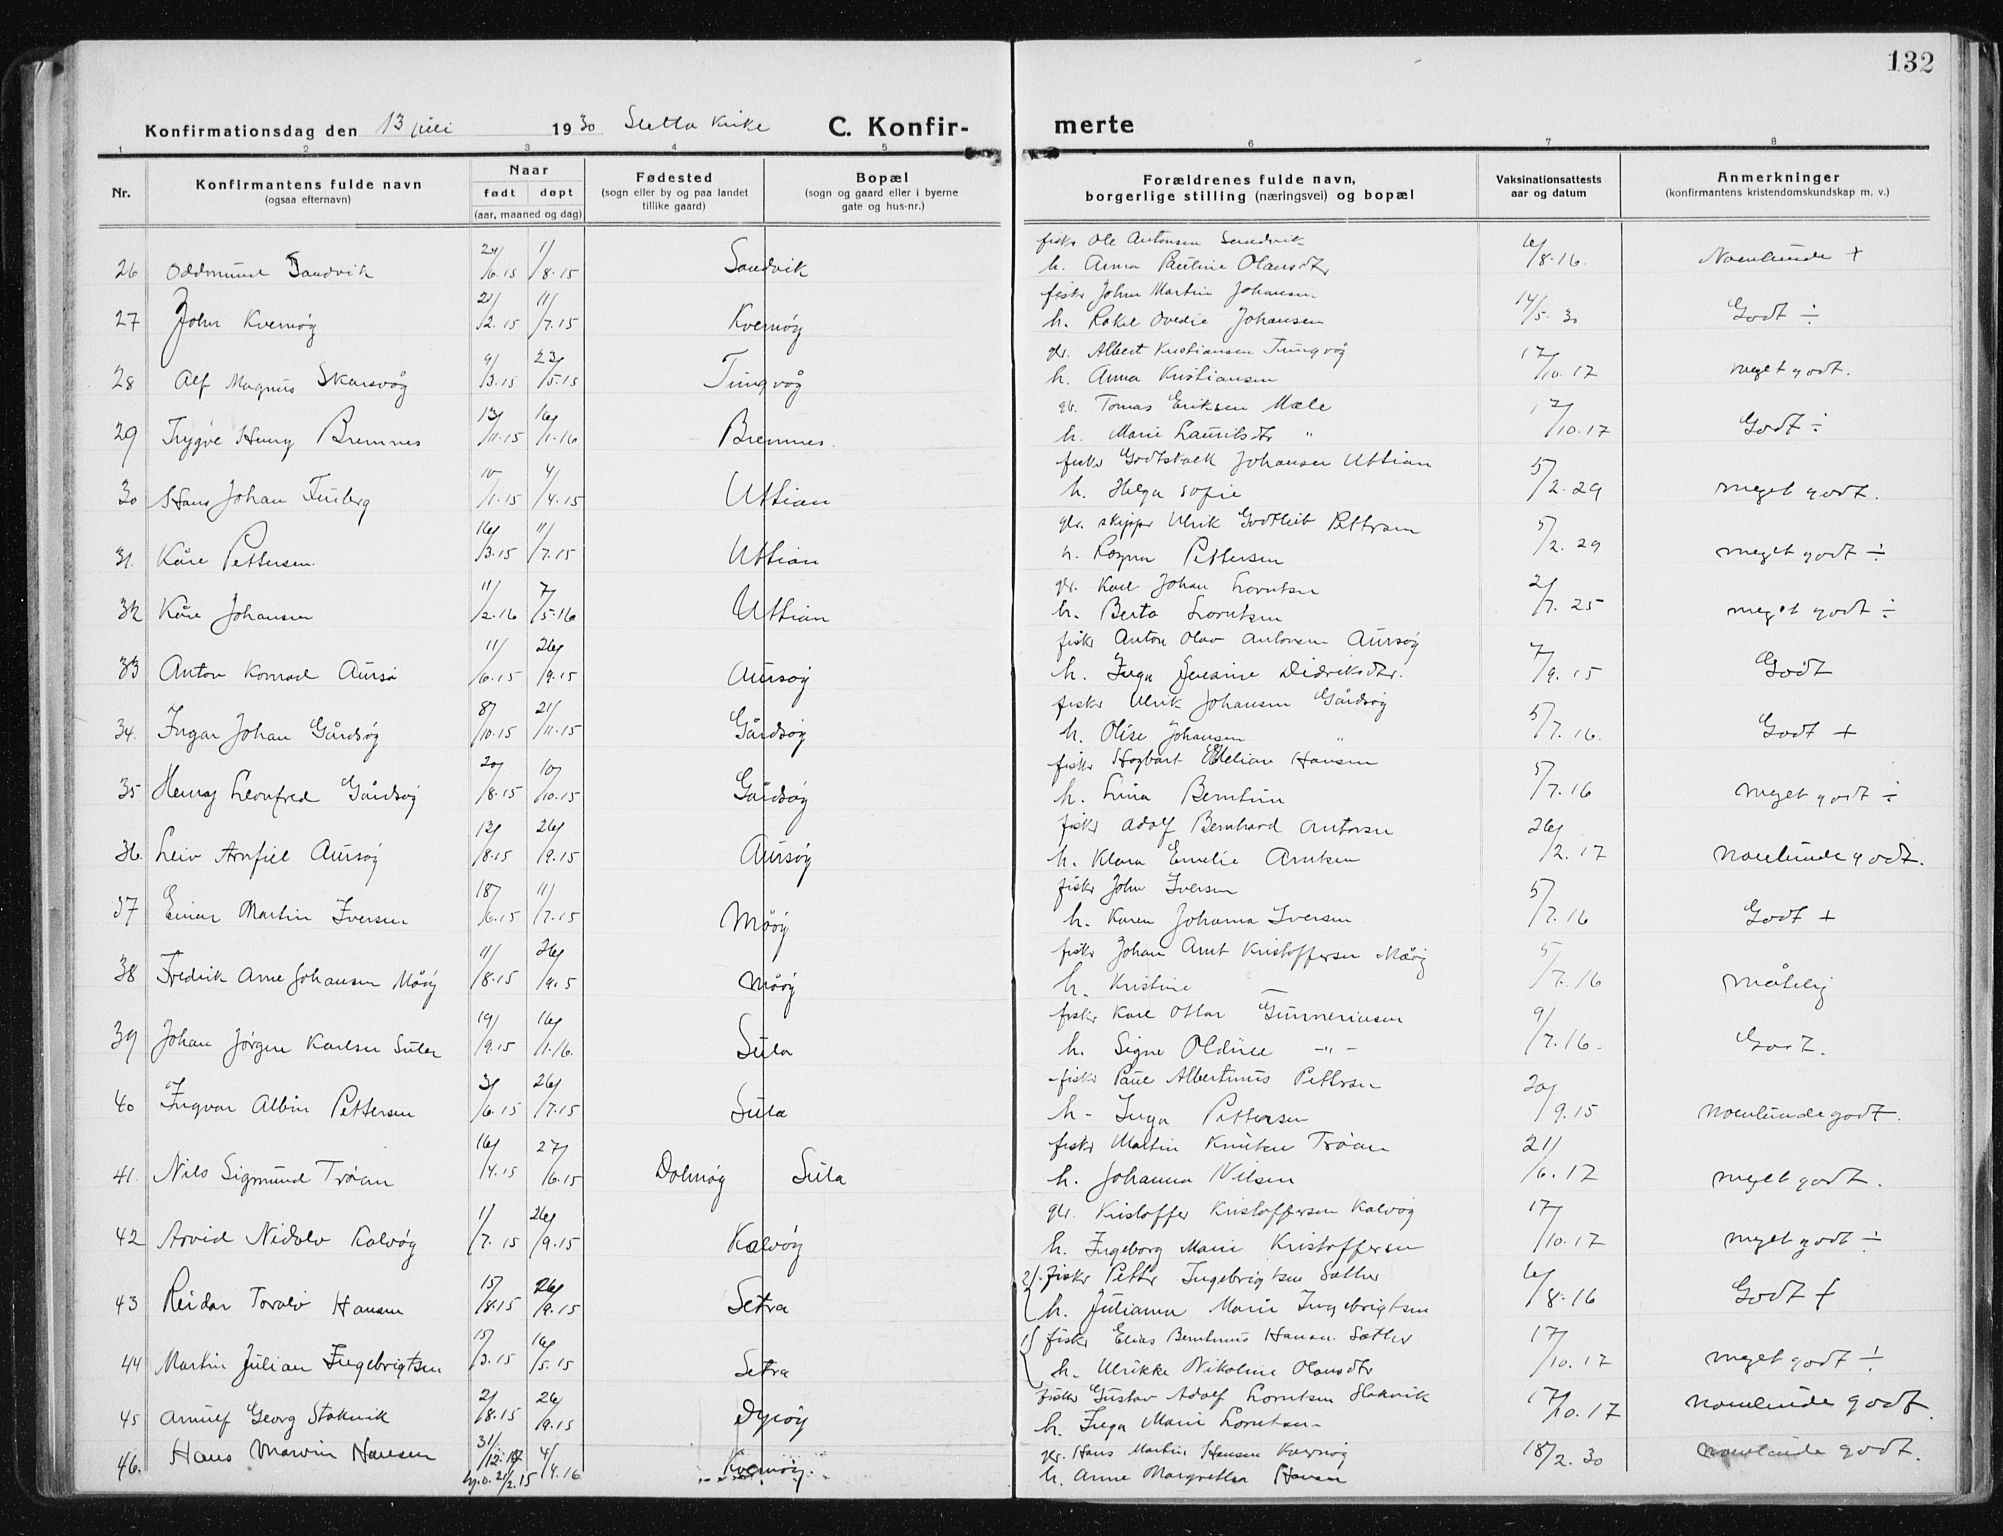 132
Konfirmationsdag den 13 juli 1930 Sletta kirke C. Konfir-merte
1 2 3 4 5 6 7 8
Nr.
Konfirmantens fulde navn
(ogsaa efternavn)
Naar
født døpt
(aar, maaned og dag)
Fødested
(sogn eller by og paa landet
tillike gaard)
Bopæl
(sogn og gaard eller i byerne
gate og hus-nr.)
Forældrenes fulde navn,
borgerlige stilling (næringsvei) og bopæl
Vaksinationsattests
aar og datum
Anmerkninger
(konfirmantens kristendomskundskap m. v.)
fiskr Ole Antonsen Sandvik
26 Oddmund Sandvik 24/6.15 1/8.15 Sandvik h. Anna Pauline Olausdtr 6/8.16. Noenlunde +
fiskr John Martin Johansen
27 John Kvernøy 21/2.15 11/7.15 Kvernøy h. Rakel Ovedie Johansen 14/5.30 Godt ÷
gbr. Albert Kristiansen Tungvåg
28 Alf Magnus Skarsvåg 9/3.15 23/5.15 Tungvåg h. Anna Kristiansen 17/10.17 meget godt.
gb. Tomas Eriksen Mæle
29 Trygve Henry Bremnes 13/11.15 16/1.16 Bremnes. h. Marie Lauritsdtr " 17/10.17 Godt ÷
fiskr Godtskalk Johansen Uttian
30 Hans Johan Fusberg 10/1.15 4/4.15 Uttian h. Helga Sofie 5/2.29 meget godt.
gbr. skipper Ulrik Godtlieb Pettersen
31. Kåre Pettersen. 16/3.15 11/7.15 Uttian h. Ragna Pettersen 5/2.29 meget godt ÷
gbr. Karl Johan Lorntsen
32 Kåre Johansen 11/2.16 7/5.16 Uttian h. Berta Lorntsen 2/7.25 meget godt ÷
fiskr Anton Olav Antonsen Aursøy
33 Anton Konrad Aursø 11/6.15 26/9.15 Aursøy h. Inga Didriksdtr. 7/9.15 Godt
fiskr Ulrik Johansen Gårdsøy
34. Ingar Johan Gårdsøy 8/10.15 21/11.15 Gårdsøy h. Olise Johansen " 5/7.16. Godt +
fiskr Hagbart Edelian Hansen
35 Henry Leonfred Gårdsøy 20/8.15 10/10.15 Gårdsøy h. Lina Berntine 5/7.16 meget godt ÷
fiskr Adolf Bernhard Antonsen
36. Leiv Arnfiel Aursøy 12/8.15 26/9.15 Aursøy h. Klara Emelie Arntsen 26/2.17 noenlunde godt.
fiskr John Iversen
37 Einar Martin Iversen 18/6.15 11/7.15 Måøy h. Karen Johanna Iversen 5/7.16 Godt +
fiskr Johan Arnt Kristoffersen Måøy
38 Fredrik Arne Johansen Måøy 11/8.15 26/9.5 Måøy h. Kristine 5/7.16 måtelig
fiskr Karl Ottar Gunneriusen
39 Johan Jørgen Karlsen Sula 19/9.15 16/1.16. Sula h. Signe Oldine -"- 9/7.16. Godt.
fiskr Paul Albertinus Pettersen
40 Ingvar Albin Pettersen 3/6.15 26/7.15 Sula h. Inga Pettersen 20/9.15 noenlunde godt.
fiskr Martin Knutsen Trøan
41. Nils Sigmund Trøan 16/4.15 27/6.15 Dolmøy Sula h. Johanna Nilsen 21/6.17 meget godt.
gbr. Kristoffer Kristoffersen Kalvøy
42 Arvid Nidolv Kalvøy 1/7.15 26/9.15 Kalvøy h. Ingeborg Marie Kristoffersen 17/10.17 meget godt ÷
2) fiskr Petter Ingebrigtsen Sæther
43 Reidar Toralv Hansen 15/8.15 26/9.15 Setra h. Julianna Marie Ingebrigtsen 6/8.16 Godt +
1) fiskr Elias Berntinus Hansen Sæther
44 Martin Julian Ingebrigtsen 15/3.15 16/5.15 Setra h. Ulrikke Nikoline Olausdtr 17/10.17 meget godt ÷
fiskr Gustav Adolf Lorntsen Stokvik
45 Arnulf Georg Stokvik 2/8.15 26/9.15 Dyrøy h. Inga Marie Lorntsen 17/10.17 noenlunde godt.
gbr. Hans Martin Hansen Kvernøy
46. Hans Marvin Hansen 31/12.17 21/2.15 4/4.16 Kvernøy. h. Anne Margrethe Hansen 18/2.30 noenlunde godt.